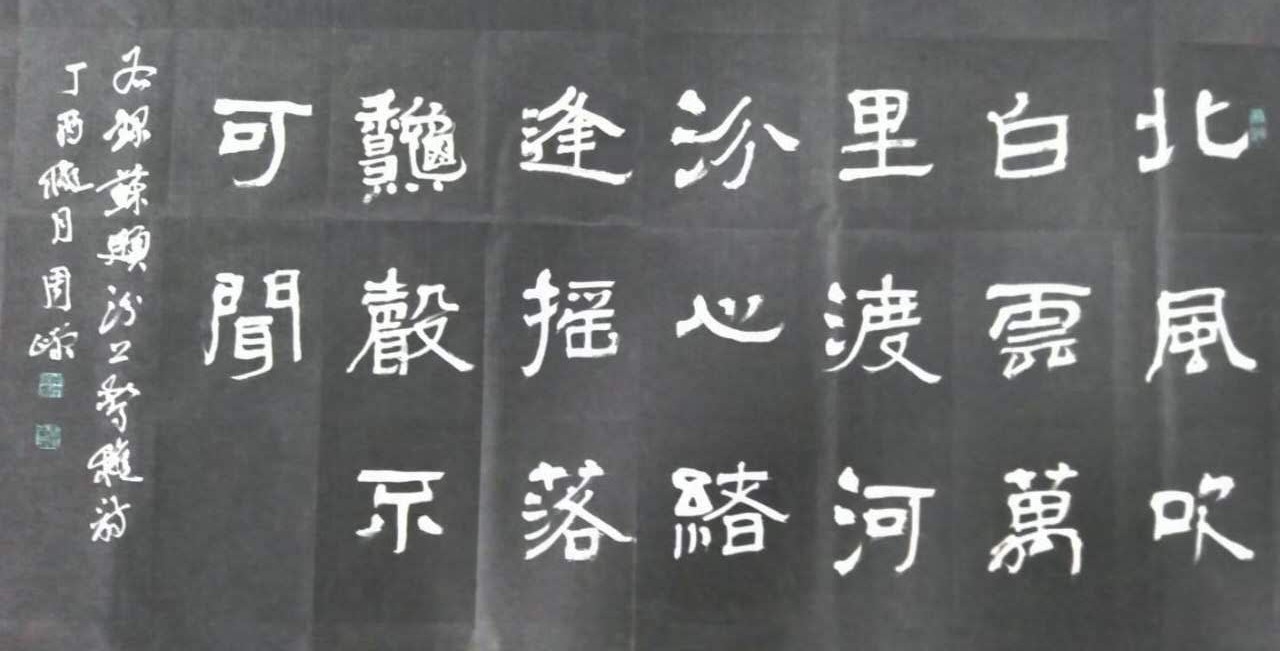 北風吹
白雲萬
里渡河
汾心緒
逢搖落
龝聲不
可聞
右錄蘇頲汾上驚穐詩
丁酉穐月周